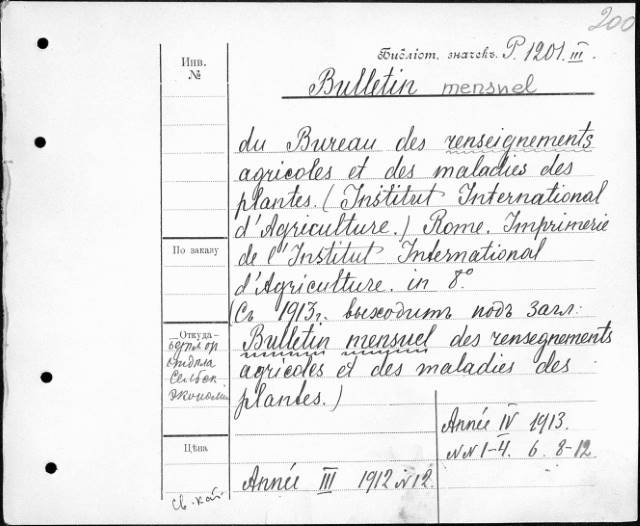 200
Библіот. значекъ. P. 1201. III.
Инв. №
Bulletin mensuel
du Bureau des renseignements
agricoles et des maladies des
plantes. (Institut International
d'Agriculture.) Rome. Imprimerie
По заказу
de l'Institut International
d'Agriculture. in 8°
(Съ 1913г. выходитъ подъ загл:
Откуда
Bulletin mensuel des rensegnements
отдѣла
agricoles et des maladies des
Сельск.
plantes.)
Экономіи
Année IV 1913.
NN 1-4. 6. 8-12.
Цѣна
Année III 1912 N 12.